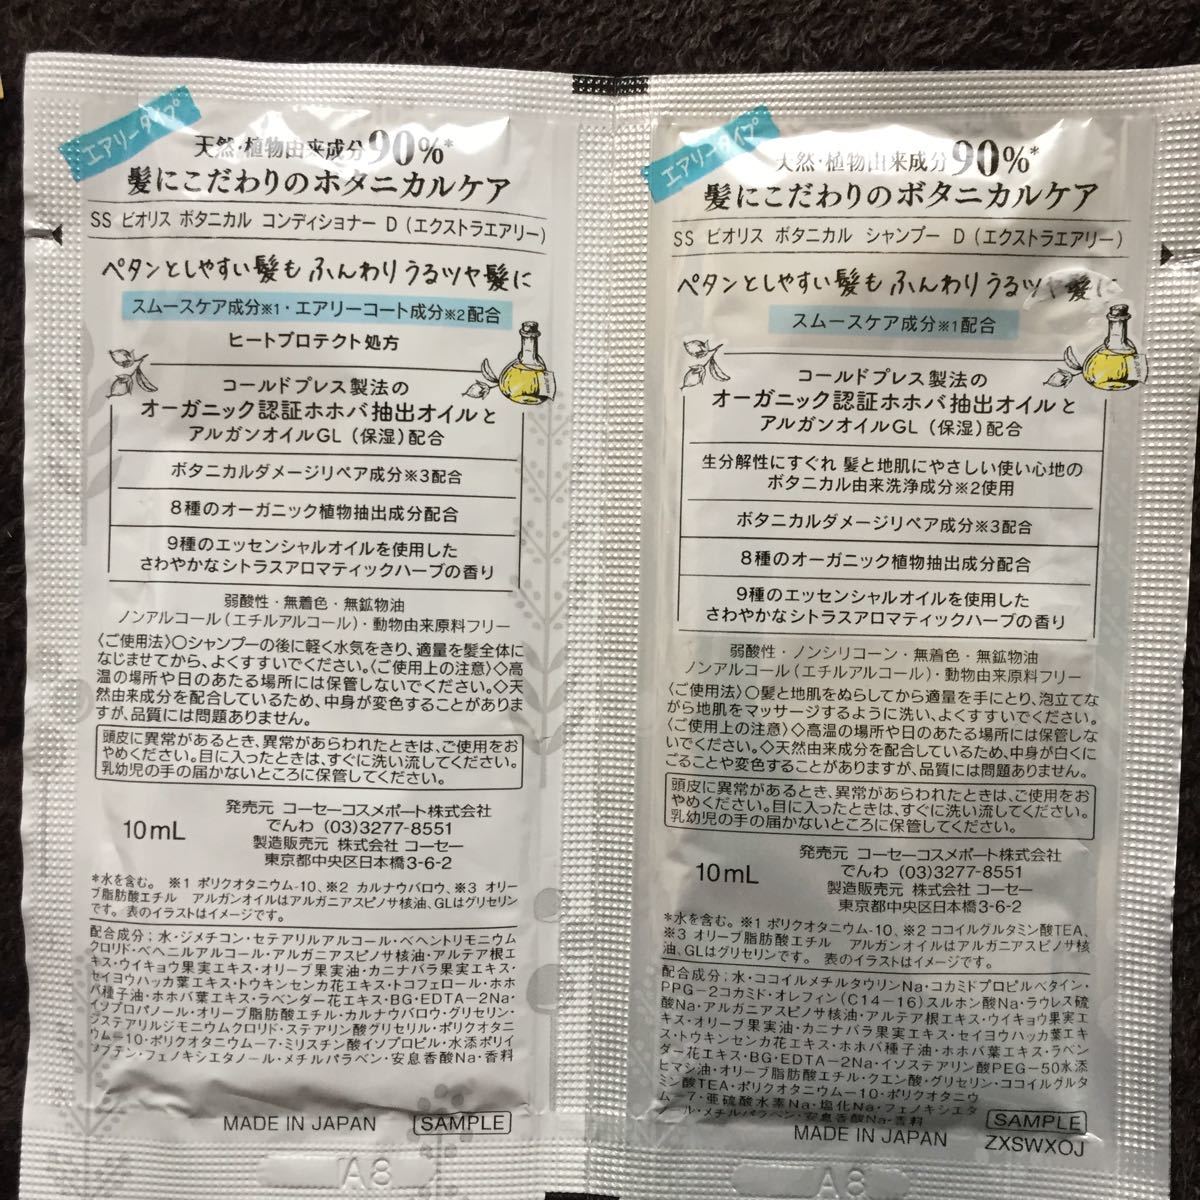 エアリータイプ
天然・植物由来成分90%*
髪にこだわりのボタニカルケア
SS ビオリス ボタニカル コンディショナー D（エクストラエアリー）
ペタンとしやすい髪も ふんわり うるツヤ髪に
スムースケア成分※1・エアリーコート成分※2配合
ヒートプロテクト処方
コールドプレス製法の
オーガニック認証ホホバ抽出オイルと
アルガンオイルGL（保湿）配合
ボタニカルダメージリペア成分※3配合
8種のオーガニック植物抽出成分配合
9種のエッセンシャルオイルを使用した
さわやかなシトラスアロマティックハーブの香り
弱酸性・無着色・無鉱物油
ノンアルコール（エチルアルコール）・動物由来原料フリー
〈ご使用法〉○シャンプーの後に軽く水気をきり、適量を髪全体に
なじませてから、よくすすいでください。〈ご使用上の注意〉◇高
温の場所や日のあたる場所には保管しないでください。◇天
然由来成分を配合しているため、中身が変色することがありま
すが、品質には問題ありません。
頭皮に異常があるとき、異常があらわれたときは、ご使用をお
やめください。目に入ったときは、すぐに洗い流してください。
乳幼児の手の届かないところに保管してください。
10mL
発売元 コーセーコスメポート株式会社
でんわ (03)3277-8551
製造販売元 株式会社 コーセー
東京都中央区日本橋3-6-2
*水を含む。 ※1 ポリクオタニウム-10、※2 カルナウバロウ、※3 オリー
ブ脂肪酸エチル アルガンオイルはアルガニアスピノサ核油、GLはグリセリン
です。 表のイラストはイメージです。
配合成分；水・ジメチコン・セテアリルアルコール・ベヘントリモニウム
クロリド・ベヘニルアルコール・アルガニアスピノサ核油・アルテア根エ
キス・ウイキョウ果実エキス・オリーブ果実油・カニナバラ果実エキス・
セイヨウハッカ葉エキス・トウキンセンカ花エキス・トコフェロール・ホホ
バ種子油・ホホバ葉エキス・ラベンダー花エキス・BG・EDTA-2Na・
イソプロパノール・オリーブ脂肪酸エチル・カルナウバロウ・グリセリン・
ジステアリルジモニウムクロリド・ステアリン酸グリセリル・ポリクオタニ
ウム-10・ポリクオタニウム-7・ミリスチン酸イソプロピル・水添ポリイ
ソブテン・フェノキシエタノール・メチルパラベン・安息香酸Na・香料
MADE IN JAPAN
SAMPLE
8A
エアリータイプ
天然・植物由来成分90%*
髪にこだわりのボタニカルケア
SS ビオリス ボタニカル シャンプー D（エクストラエアリー）
ペタンとしやすい髪も ふんわり うるツヤ髪に
スムースケア成分※1配合
コールドプレス製法の
オーガニック認証ホホバ抽出オイルと
アルガンオイルGL（保湿）配合
生分解性にすぐれ 髪と地肌にやさしい使い心地の
ボタニカル由来洗浄成分※2使用
ボタニカルダメージリペア成分※3配合
8種のオーガニック植物抽出成分配合
9種のエッセンシャルオイルを使用した
さわやかなシトラスアロマティックハーブの香り
弱酸性・ノンシリコーン・無着色・無鉱物油
ノンアルコール（エチルアルコール）・動物由来原料フリー
〈ご使用法〉○髪と地肌をぬらしてから適量を手にとり、泡立てな
がら地肌をマッサージするように洗い、よくすすいでください。
〈ご使用上の注意〉◇高温の場所や日のあたる場所には保管しな
いでください。◇天然由来成分を配合しているため、中身が白くに
ごることや変色することがありますが、品質には問題ありません。
頭皮に異常があるとき、異常があらわれたときは、ご使用をお
やめください。目に入ったときは、すぐに洗い流してください。
乳幼児の手の届かないところに保管してください。
10mL
発売元 コーセーコスメポート株式会社
でんわ (03)3277-8551
製造販売元 株式会社 コーセー
東京都中央区日本橋3-6-2
*水を含む。 ※1 ポリクオタニウム-10、※2 ココイルグルタミン酸TEA、
※3 オリーブ脂肪酸エチル アルガンオイルはアルガニアスピノサ核
油、GLはグリセリンです。 表のイラストはイメージです。
配合成分；水・ココイルメチルタウリンNa・コカミドプロピルベタイン・
PPG-2コカミド・オレフィン(C14-16)スルホン酸Na・ラウレス硫
酸Na・アルガニアスピノサ核油・アルテア根エキス・ウイキョウ果実エ
キス・オリーブ果実油・カニナバラ果実エキス・セイヨウハッカ葉エキ
ス・トウキンセンカ花エキス・ホホバ種子油・ホホバ葉エキス・ラベン
ダー花エキス・BG・EDTA-2Na・イソステアリン酸PEG-50水添
ヒマシ油・オリーブ脂肪酸エチル・クエン酸・グリセリン・ココイルグルタ
ミン酸TEA・ポリクオタニウム-10・ポリクオタニウ
ム-7・亜硫酸水素Na・塩化Na・フェノキシエタ
ノール・メチルパラベン・安息香酸Na・香料
MADE IN JAPAN
SAMPLE
ZXSWXOJ
8A